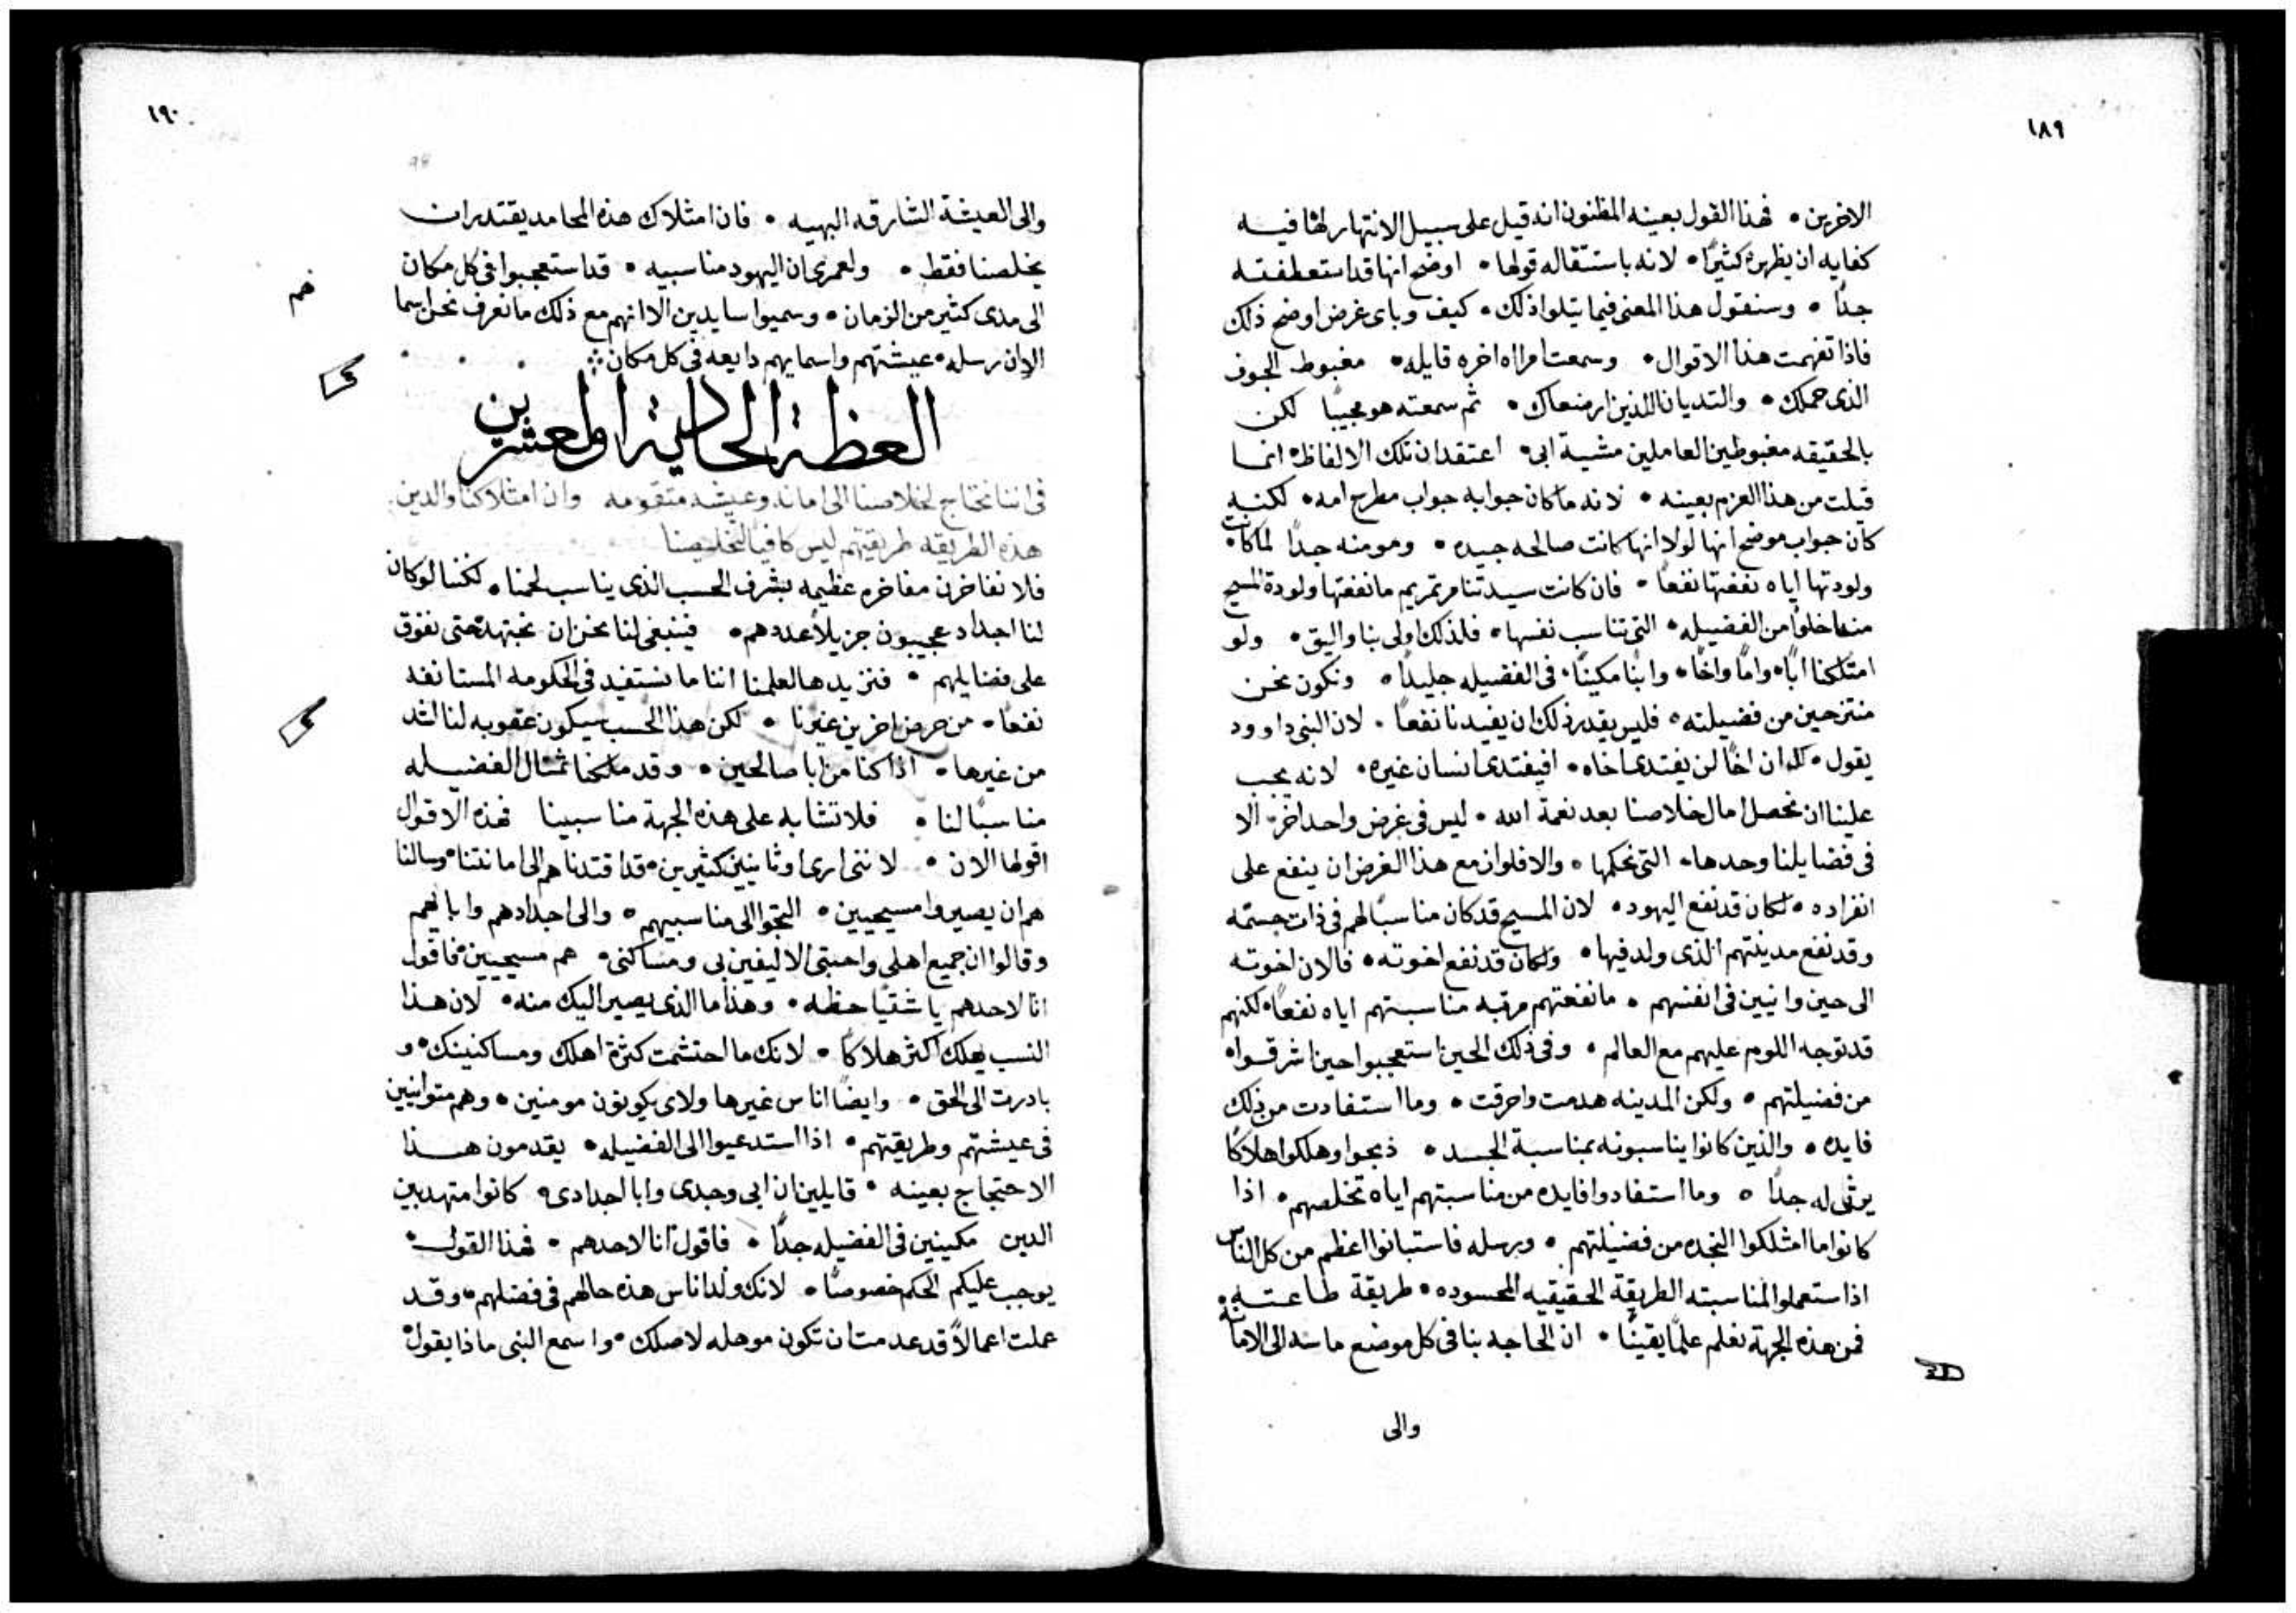 ١٨٩
الاخرين • فهذا القول بعينه المظنون انه قيل على سبيل الانتهار لها فيه
كفايه ان يظهره كثيرًا • لانه باستثقاله قولها • اوضح انها قد استعطفته
جدًا • وسنقول هذا المعنى فيما يتلوا ذلك • كيف وباى غرض اوضح ذلك
فاذا تفهمت هذا الاقوال • وسمعت امراه اخره قايله • مغبوط الجوف
الذى حملك • والتديان اللذين ارضعاك • ثم سمعته هو مجيبًا لكن
بالحقيقه مغبوطين العاملين مشية ابى • اعتقد ان تلك الالفاظ • انما
قيلت من هذا العزم بعينه • لانه ما كان جوابه جواب مطرح امه • لكنه
كان جواب موضح انها لولا انها كانت صالحه جيده • ومومنه جدًا لما كانت
ولودتها اياه نفعتها نفعًا • فان كانت سيدتنا مرتمريم ما نفعتها ولودة المسيح
منها خلوًا من الفضيله • التى تناسب نفسها • فلذلك اولى بنا واليق • ولو
امتلكنا ابًا • وامًا واخًا • وابنًا مكينًا • فى الفضيله جليدًا • ونكون نحن
منتزحين من فضيلته • فليس يقدر ذلك ان يفيدنا نفعًا • لان النبى داوود
يقول • ان اخًا لن يفتدى اخاه • افيفتدى انسان غيره • لانه يجب
علينا ان نحصل امال خلاصنا بعد نعمة الله • ليس فى غرض واحد اخر • الا
فى فضايلنا وحدها • التى نحكمها • والا فلو ان مع هذا الغرض ان ينفع على
انفراده • لكان قد نفع اليهود • لان المسيح قد كان مناسبًا لهم فى ذات جسمه
وقد نفع مدينتهم الذى ولد فيها • ولكان قد نفع اخوته • فالان اخوته
الى حين وانيين فى انفسهم • ما نفعتهم مرتبه مناسبتهم اياه نفعًا • لكنهم
قد توجه اللوم عليهم مع العالم • وفى ذلك الحين استعجبوا حين اشرقوا •
من فضيلتهم • ولكن المدينه هدمت واحرقت • وما استفادت من ذلك
فايده • والذين كانوا يناسبونه بمناسبة الجسد • ذبحوا وهلكوا هلاكًا
يرثى له جدًا • وما استفادوا فايده من مناسبتهم اياه تخلصهم • اذا
كانوا ما امتلكوا النجده من فضيلتهم • ورسله فاستبانوا اعظم من كل الناس
اذا ستعملوا لمناسبته الطريقة الحقيقيه المحسوده • طريقة طاعته •
فمن هذه الجهة نعلم علمًا يقينًا • ان الحاجه بنا فى كل موضع ماسه الى الامانة
والى
١٩٠
والى العيشة الشارقه البهيه • فان امتلاك هذه المحامد يقتدر ان
يخلصنا فقط • ولعمرى ان اليهود مناسبيه • قد استعجبوا فى كل مكان
الى مدى كثير من الزمان • وسميوا سايدين الا انهم مع ذلك ما نعرف نحن اسما
الان رسله • عيشتهم واسمايهم دايعه فى كل مكان
العظة الحادية والعشرين
فى اننا نحتاج لخلاصنا الى امانه وعيشه متقومه وان امتلاكنا والدين
هذه الطريقه طريقتهم ليس كافيًا لتخليصنا
فلا نفاخرن مفاخره عظيمه بشرف الحسب الذى يناسب لحمنا • لكننا لو كان
لنا اجداد عجيبون جزيلًا عددهم • فينبغى لنا نحن ان نجتهد حتى نفوق
على فضايلهم • فنزيدها لعلمنا اننا ما نستفيد فى الحكومه المستانفه
نفعًا • من حرص اخرين غيرنا • لكن هذا الحسب سيكون عقوبه لنا اشد
من غيرها • اذا كنا من ابا صالحين • وقد ملكنا تمثال الفضيله
مناسبًا لنا • فلا تشابه على هذه الجهة مناسبينا فهذه الاقوال
اقولها الان • لاننى ارى اوثانيين كثيرين • قد اقتدناهم الى امانتنا • وسالنا
هم ان يصيروا مسيحيين • التجوا الى مناسبيهم • والى اجدادهم وابايهم
وقالوا ان جميع اهلى واحبتى الاليفين بى ومساكنى • هم مسيحيين • فاقول
انا لاحدهم يا شقيًا حظه • وهذا ما الذى يصير اليك منه • لان هذا
النسب يهلك اكثر هلاكًا • لانك ما احتشمت كثرة اهلك ومساكنينك • و
بادرت الى الحق • وايضًا اناس غيرها ولاى يكونون مومنين • وهم متوانيين
فى عيشتهم وطريقتهم • اذا استدعيوا الى الفضيله • يقدمون هذا
الاحتجاج بعينه • قايلين ان ابى وجدى وابا اجدادى • كانوا متهدبين
الدين مكينين فى الفضيله جدًا • فاقول انا لاحدهم • فهذا القول •
يوجب عليكم الحكم خصوصًا • لانك ولد اناس هذه حالهم فى فضلهم • وقد
عملت اعمالًا قد عدمت ان تكون موهله لاصلك • واسمع النبى ماذا يقول